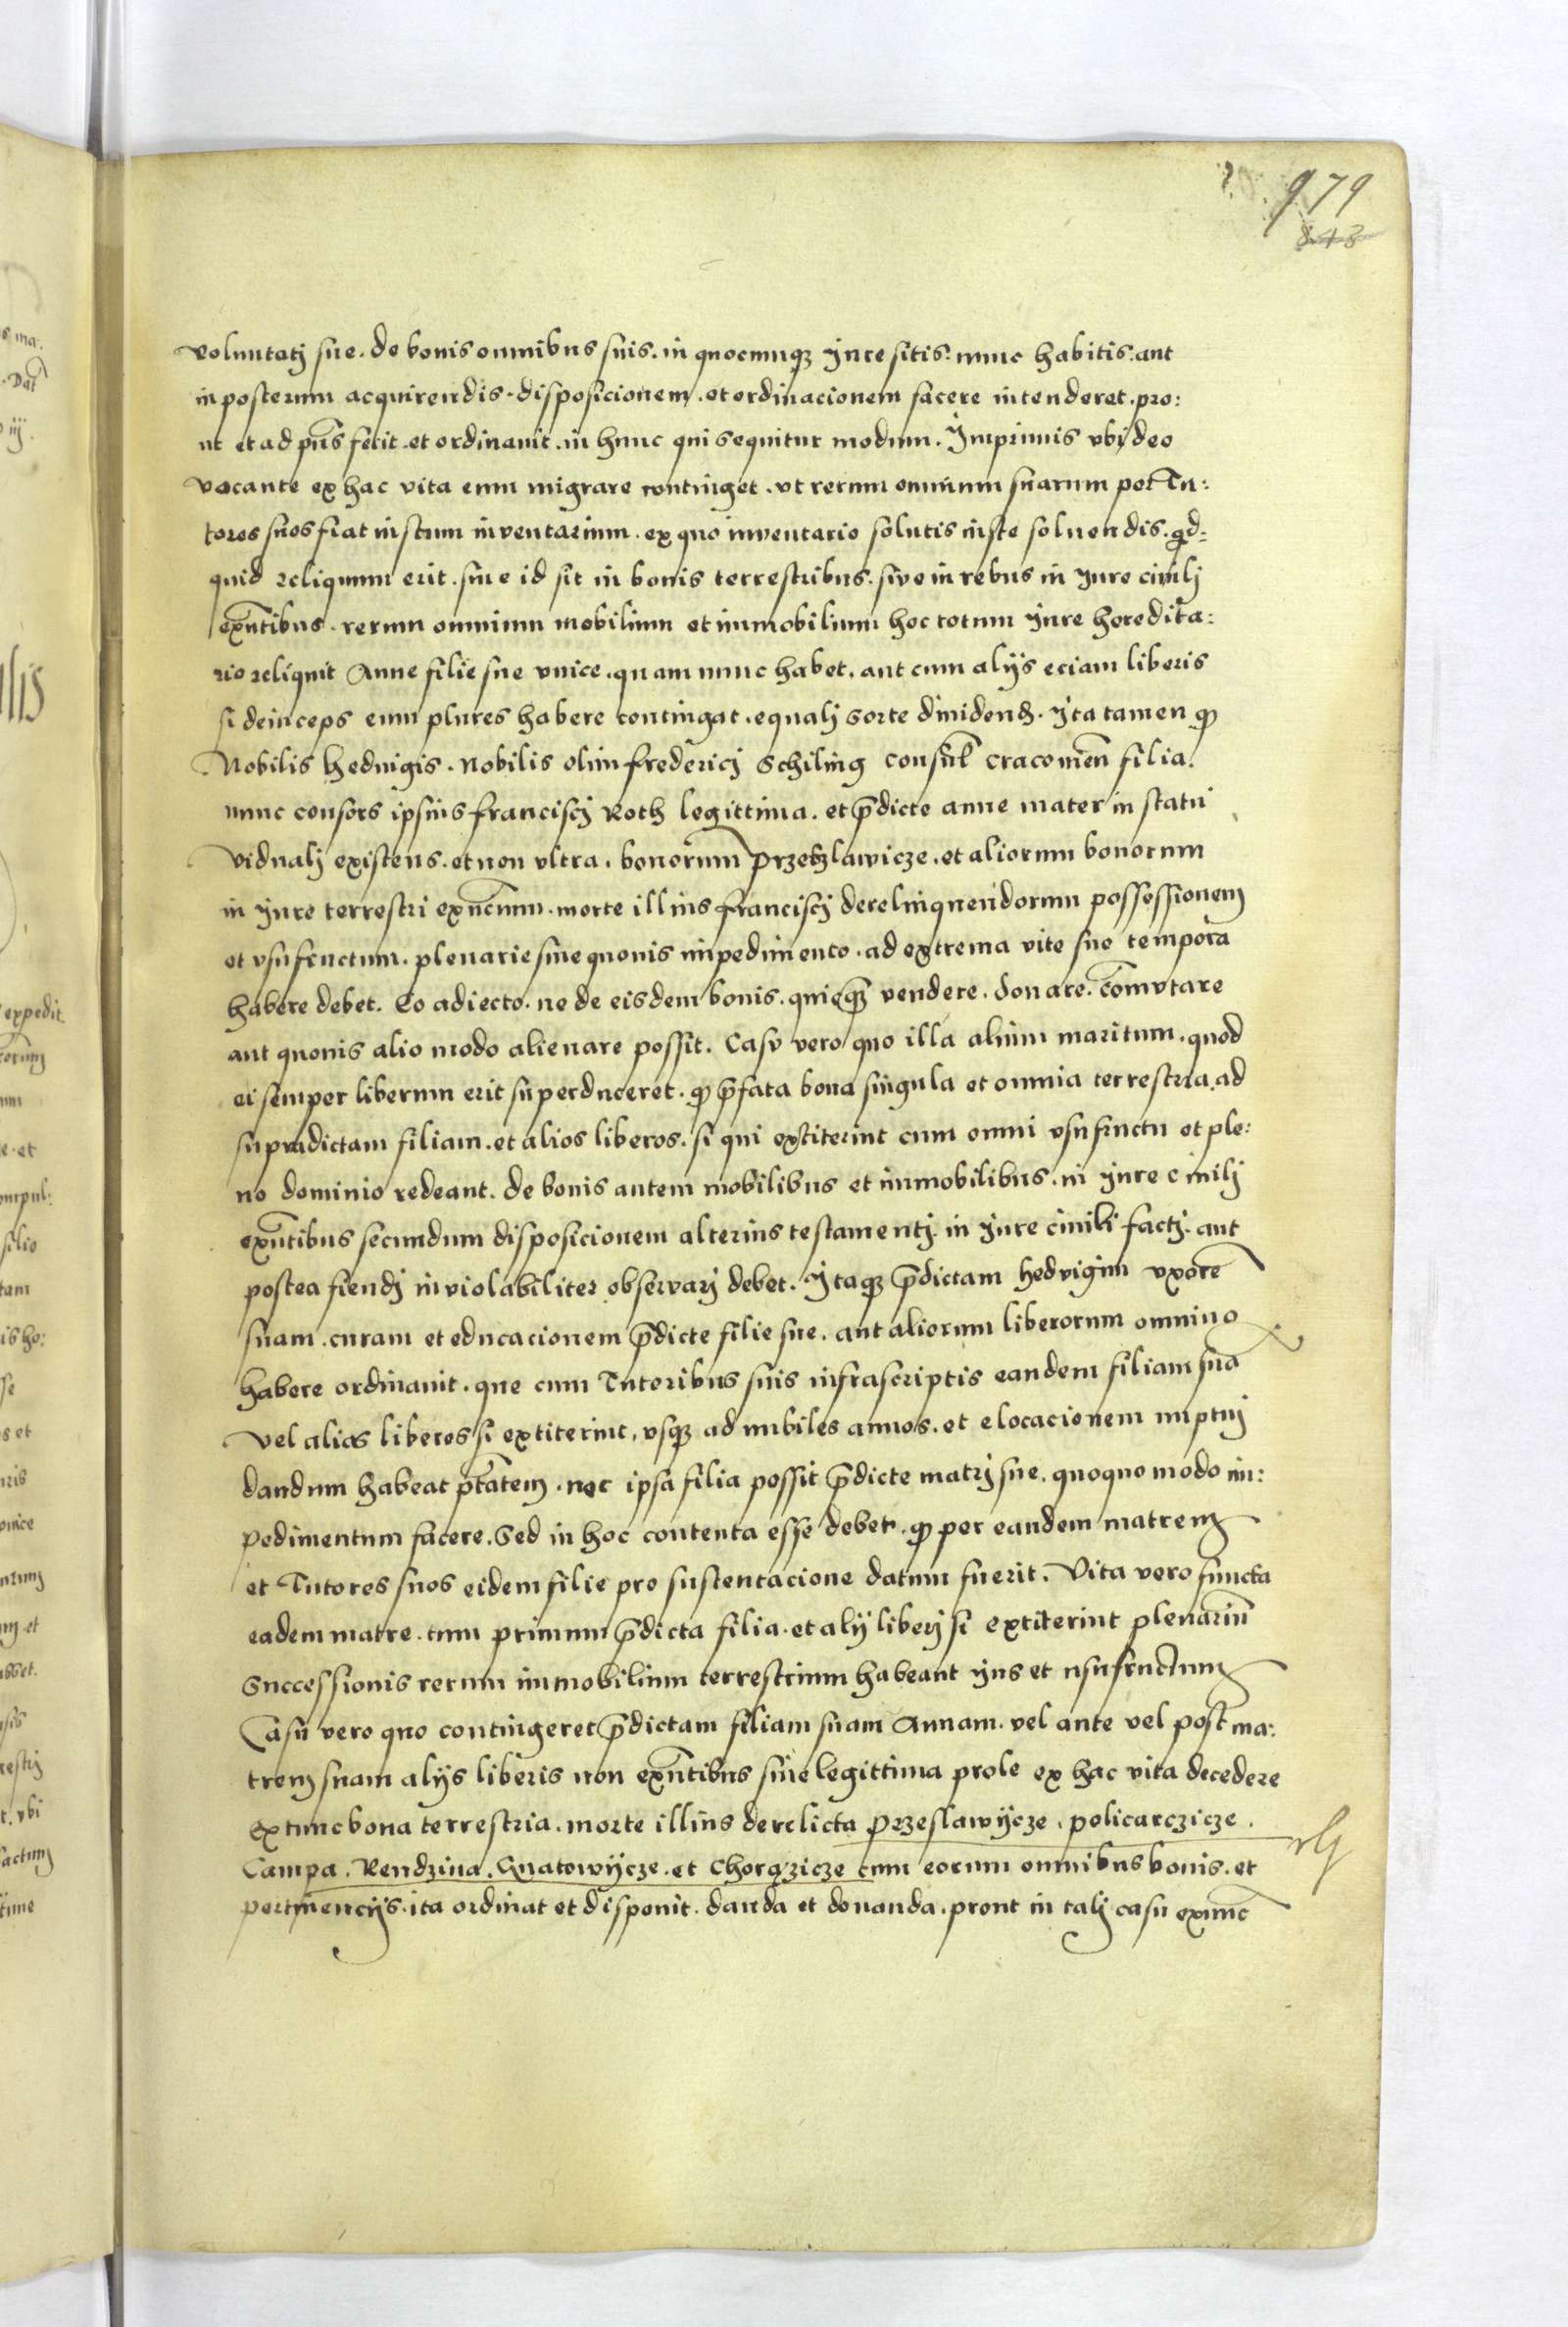 979
843
voluntatj sue. de bonis omnibus suis. in quocunqz jure sitis. nunc habitis. aut
in posterum acquirendis. disposicionem. et ordinacionem facere intenderet. pro:
ut et ad pñs fecit. et ordinauit. in hunc qui sequitur modum. Jmprimis vbi deo
vocante ex hac vita eum migrare continget. vt rerum omnium suarum per Tu:
tores suos fiat iustum inventarium. ex quo inventario solutis iuste soluendis. qd=
quid reliquum erit. siue id sit in bonis terrestribus. sive in rebus in jure ciuilj
exñtibus. rerum omnium mobilium et immobilium hoc totum jure heredita:
rio reliquit Anne filie sue vnice. quam nunc habet. aut cum alijs eciam liberis
si deinceps eum plures habere contingat. equalj sorte diuidend. jta tamen qz
Nobilis Hedvigis. Nobilis olim fredericj Schiling consul Cracouien filia.
nunc consors ipsius franciscj Roth legittima. et p̄dicte anne mater in statu
vidualj existens. et non vltra. bonorum Przetzlawicze. et aliorum bonorum
in jure terrestri exñcium. morte illius franciscj derelinquendorum possessionem
et vsufructum. plenarie sine quouis impedimento. ad extrema vite sue tempora
habere debet. Eo adiecto. ne de eisdem bonis. quicqz vendere. donare. com̄vtare
aut quouis alio modo alienare possit. Casv vero quo illa alium maritum. quod
ei semper liberum erit superduceret. qz p̄fata bona singula et omnia terrestria. ad
supradictam filiam. et alios liberos. si qui extiterint cum omni vsufructu et ple:
no dominio redeant. de bonis autem mobilibus et immobilibus. in jure ciuilj
exñtibus secundum disposicionem alterius testamentj. in jure ciuili factj. aut
postea fiendj inviolabiliter observarj debet. Jtaqz p̄dictam Hedvigim vxorē
suam. curam et educacionem p̄dicte filie sue. aut aliorum liberorum omnino
habere ordinauit. que cum Tutoribus suis infrascriptis eandem filiam suā
vel alios liberos si extiterint. vsqz ad nubiles annos. et elocacionem nuptuj
dandum habeat ptātem. nec ipsa filia possit p̄dicte matrj sue. quoquo modo im:
pedimentum facere. Sed in hoc contenta esse debet. qz per eandem matrem
et Tutores suos eidem filie pro sustentacione datum fuerit. Vita vero functa
eadem matre. tum primum p̄dicta filia. et alij liberj si extiterint plenariū
successionis rerum immobilium terrestrium habeant jus et usufructum
Casu vero quo contingeret p̄dictam filiam suam Annam. vel ante vel post ma:
trem suam alijs liberis non exñtibus sine legittima prole ex hac vita decedere
extunc bona terrestria. morte illius derelicta Przeslawycze. policarczicze.
Campa. Rendzina. Gnatowycze. et Chorązicze cum eorum omnibus bonis. et
pertinencijs. ita ordinat et disponit. danda et donanda. prout in talj casu extunc